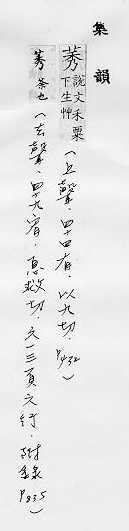 集韻
莠 說文禾粟下生㊀
（上聲．四十四有．以九切．P432）
莠 茶也（去聲．四十九宥．息救切．之一三頁之行．附錄P835）